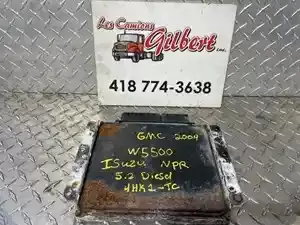 Les Camions
Gilbert inc.
418 774-3638
GMC 2004
W5500
ISUZU NPR
5.2 Diesel
4HK1-TC